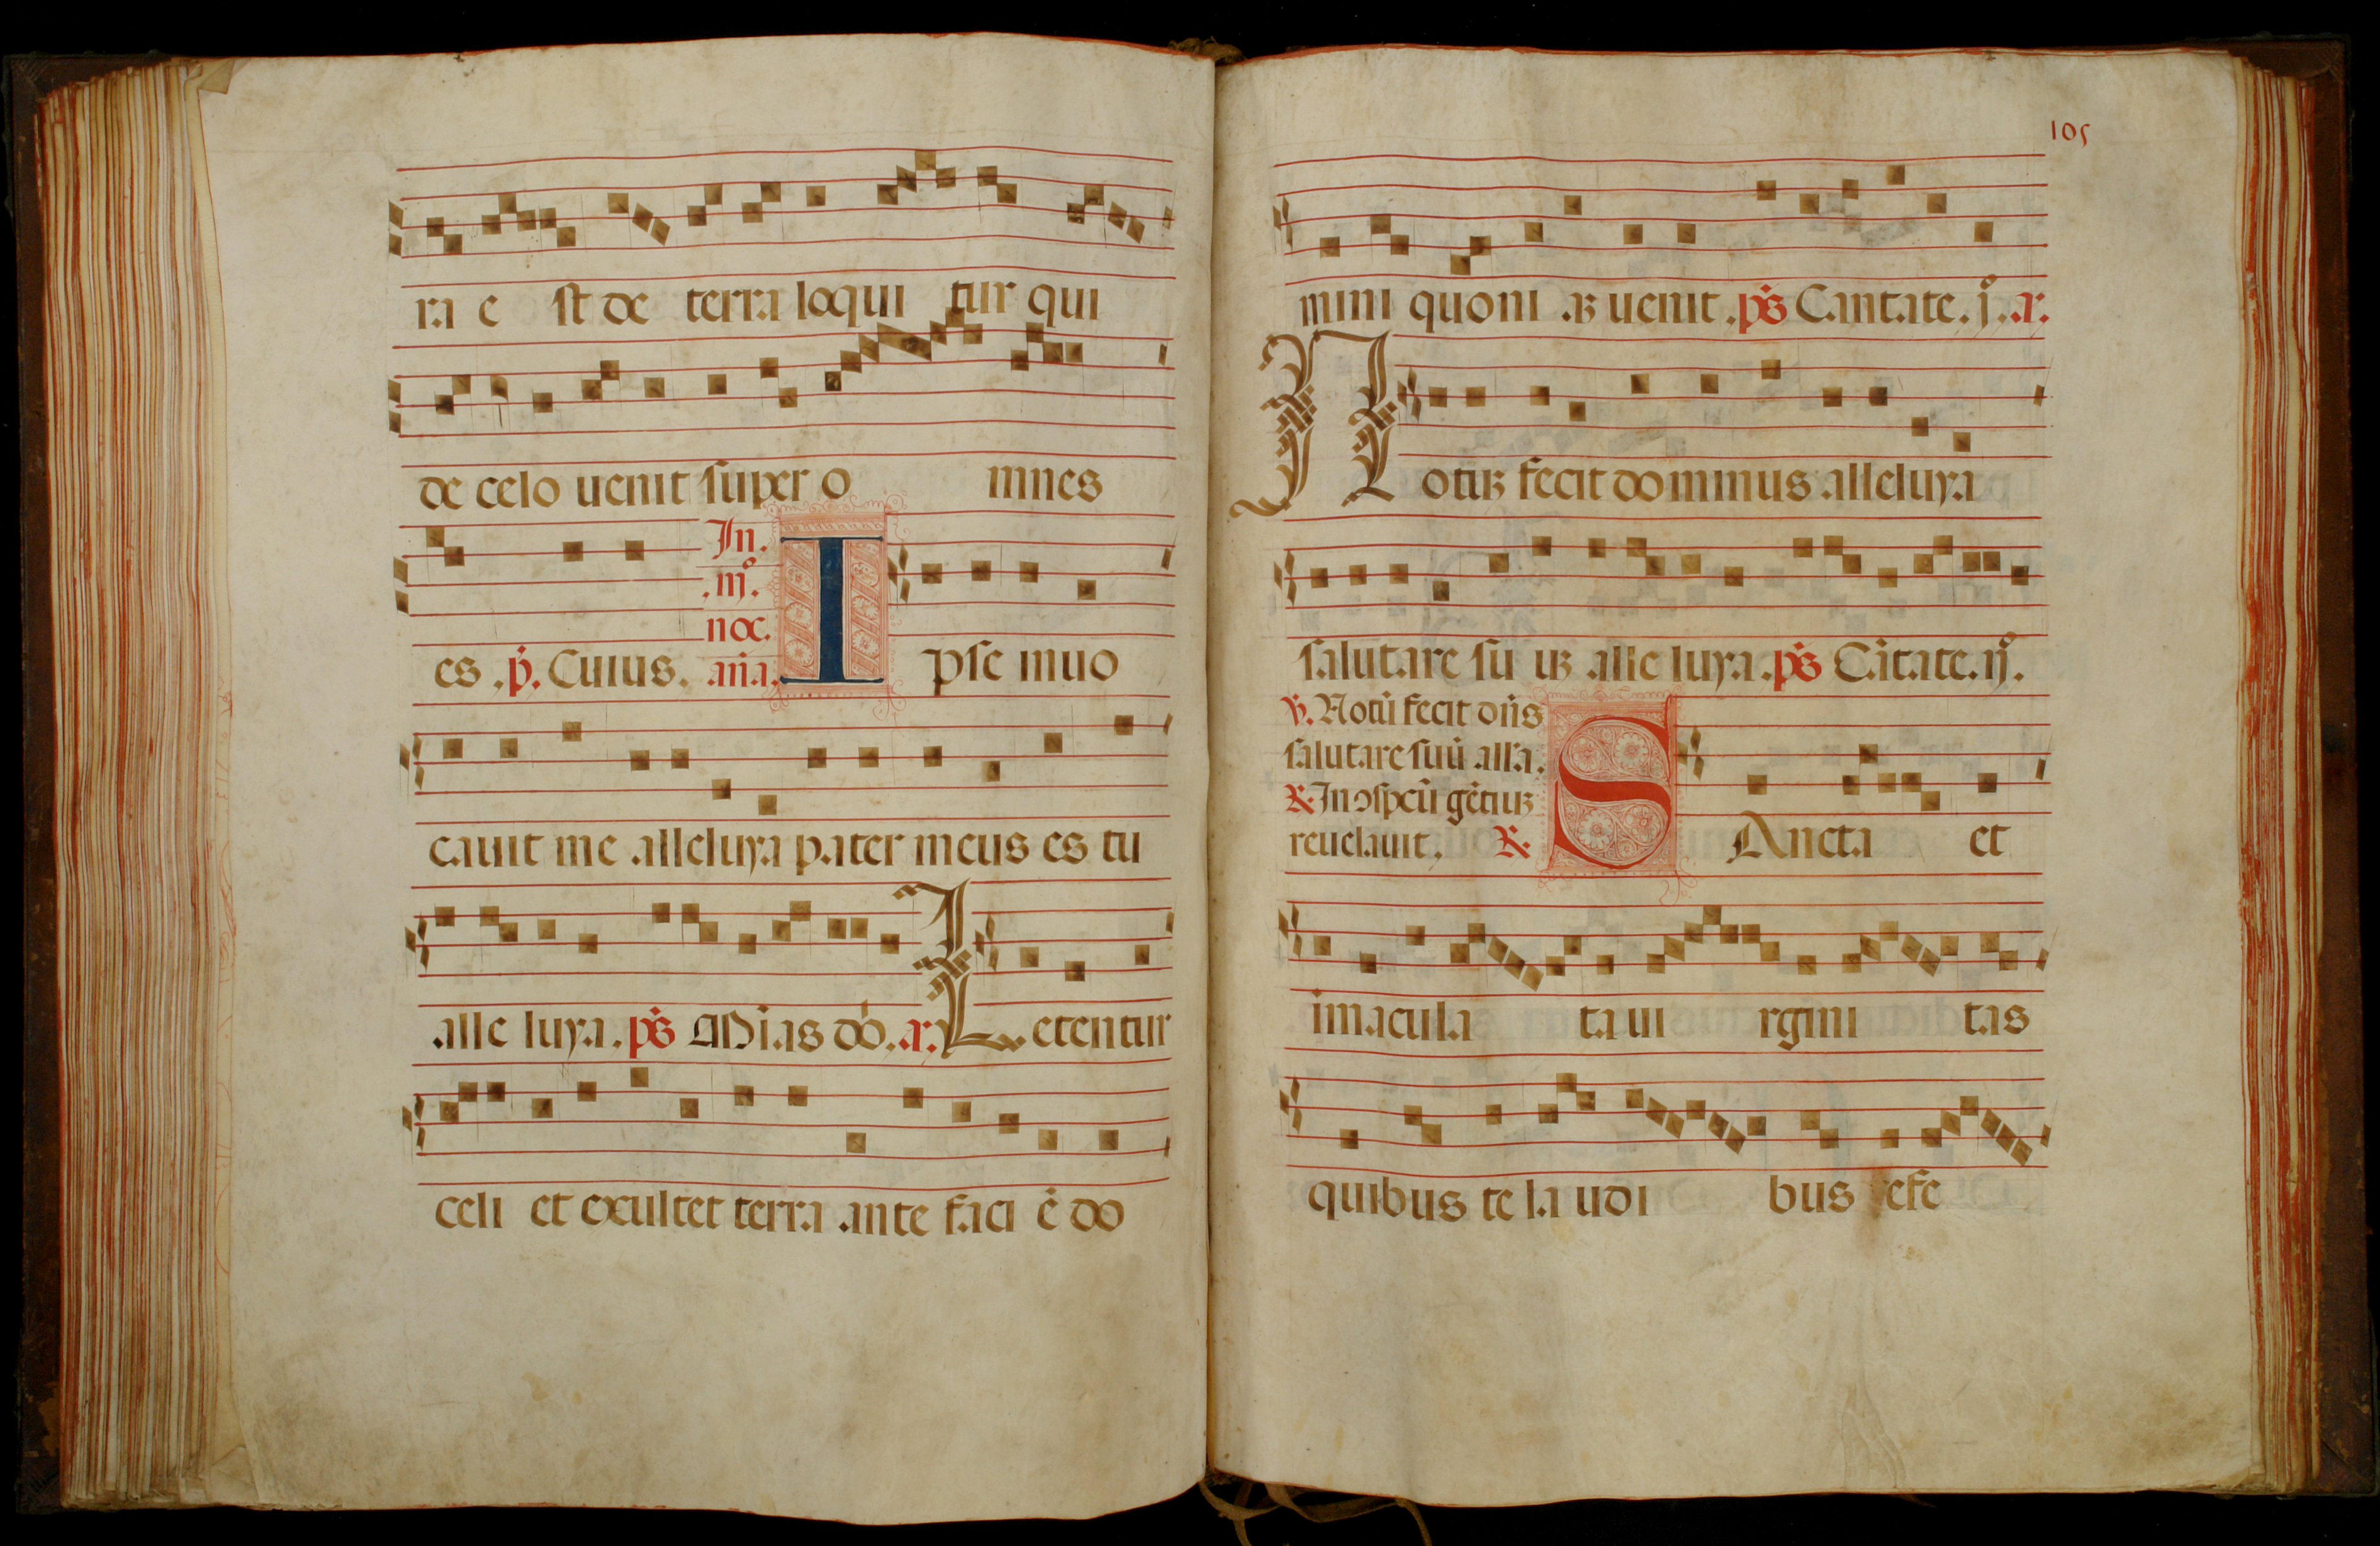 ra e st de terra loqui tur qui
de celo uenit super o mnes
In.
.iij.º
noc.
es .ṗ. Cuius. an̄a. I pse inuo
cauit me alleluya pater meus es tu
alle luya. ps̄ Mīas dō. a. Letentur
celi et exultet terra ante faci ē do
105
mini quoni aʒ uenit .ps̄ Cantate. j.º .a.
Notuʒ fecit dominus alleluya
salutare su uʒ alle luya .ps̄ Cātate. ij.º
℣. Notū fecit dn̄s
salutare suū all'a.
℟. In ɔspcū gētiuʒ
reuelauit. ℟. SAncta et
imacula ta ui rgini tas
quibus te la udi bus refe